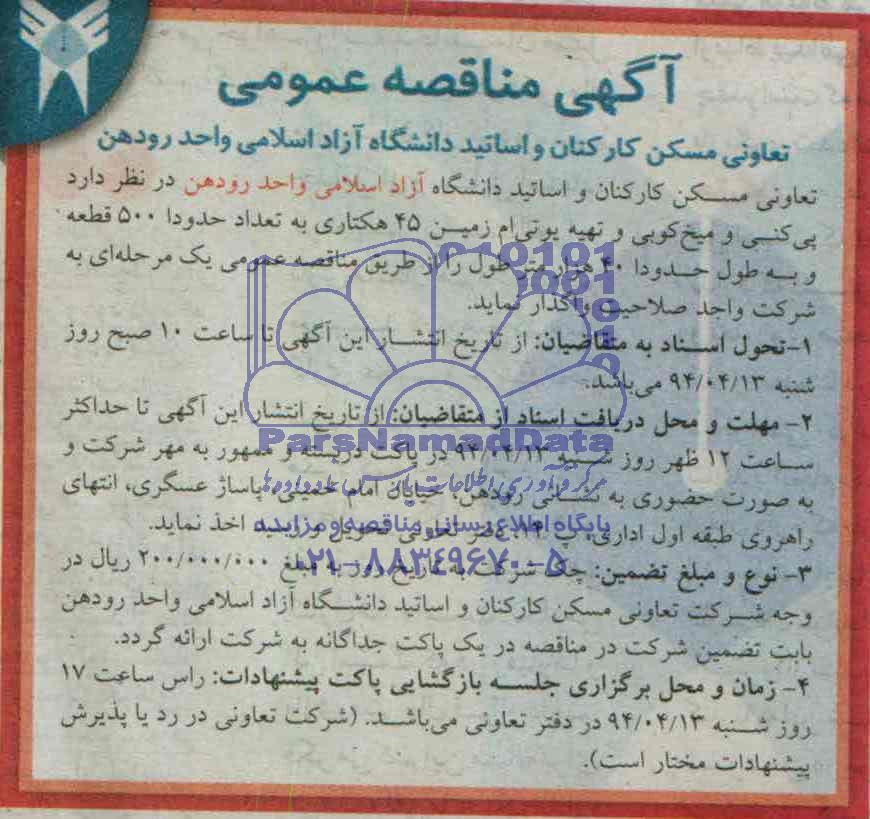 آگهی مناقصه عمومی
تعاونی مسکن کارکنان و اساتید دانشگاه آزاد اسلامی واحد رودهن
تعاونی مسکن کارکنان و اساتید دانشگاه آزاد اسلامی واحد رودهن در نظر دارد
پی‌کنی و میخ‌کوبی و تهیه یوتی‌ام زمین ۴۵ هکتاری به تعداد حدودا ۵۰۰ قطعه
و به طول حدودا ۴۰ هزار متر طول را از طریق مناقصه عمومی یک مرحله‌ای به
شرکت واجد صلاحیت واگذار نماید.
۱-تحول اسناد به متقاضیان: از تاریخ انتشار این آگهی تا ساعت ۱۰ صبح روز
شنبه ۹۴/۰۴/۱۳ می‌باشد.
۲- مهلت و محل دریافت اسناد از متقاضیان: از تاریخ انتشار این آگهی تا حداکثر
ساعت ۱۲ ظهر روز شنبه ۹۴/۰۴/۱۳ در پاکت دربسته و ممهور به مهر شرکت و
به صورت حضوری به نشانی رودهن، خیابان امام خمینی، پاساژ عسگری، انتهای
راهروی طبقه اول اداری، پ دفتر تعاونی تحویل و رسید اخذ نماید.
۳- نوع و مبلغ تضمین: چک شرکت به تاریخ روز به مبلغ ۲۰۰/۰۰۰/۰۰۰ ریال در
وجه شرکت تعاونی مسکن کارکنان و اساتید دانشگاه آزاد اسلامی واحد رودهن
بابت تضمین شرکت در مناقصه در یک پاکت جداگانه به شرکت ارائه گردد.
۴- زمان و محل برگزاری جلسه بازگشایی پاکت پیشنهادات: راس ساعت ۱۷
روز شنبه ۹۴/۰۴/۱۳ در دفتر تعاونی می‌باشد. (شرکت تعاونی در رد یا پذیرش
پیشنهادات مختار است).
ParsNamadData
مرکز فرآوری اطلاعات پارس نماد داده‌ها
پایگاه اطلاع رسانی مناقصه و مزایده
۰۲۱-۸۸۳۴۹۶۷۰-۵